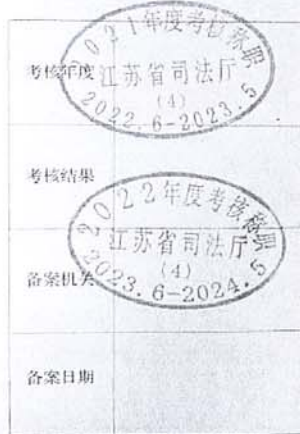 考核年度
2021年度考核称职
江苏省司法厅
(4)
2022.6-2023.5
考核结果
2022年度考核称职
江苏省司法厅
(4)
2023.6-2024.5
备案机关
备案日期